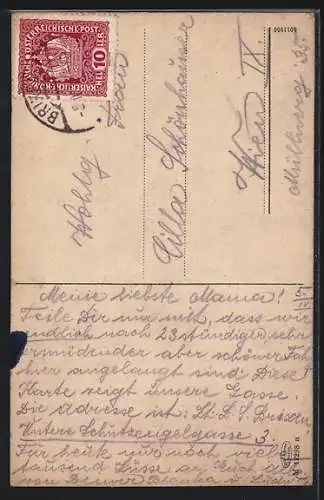 KAISERLICHE KÖNIGLICHE
ÖSTERREICHISCHE POST
10
BRIX
Wohlg.
Frau
Cilla Schönhauser
Wien IX.
Müllnerg. 35
Meine liebste Mama!
5/IV
Teile Dir nur mit, dass wir
endlich nach 23 stündiger sehr
ermüdender aber schöner Fah
hier angelangt sind. Diese
Karte zeigt unsere Gasse.
Die Adresse ist: Brixen
Untere Schützengelgasse 3.
Für heute nur noch viele
tausend Küsse an Euch a
von